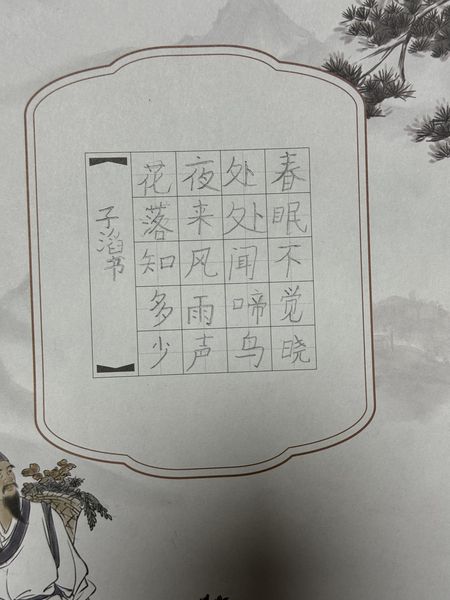 春眠不觉晓
处处闻啼鸟
夜来风雨声
花落知多少
子滔书